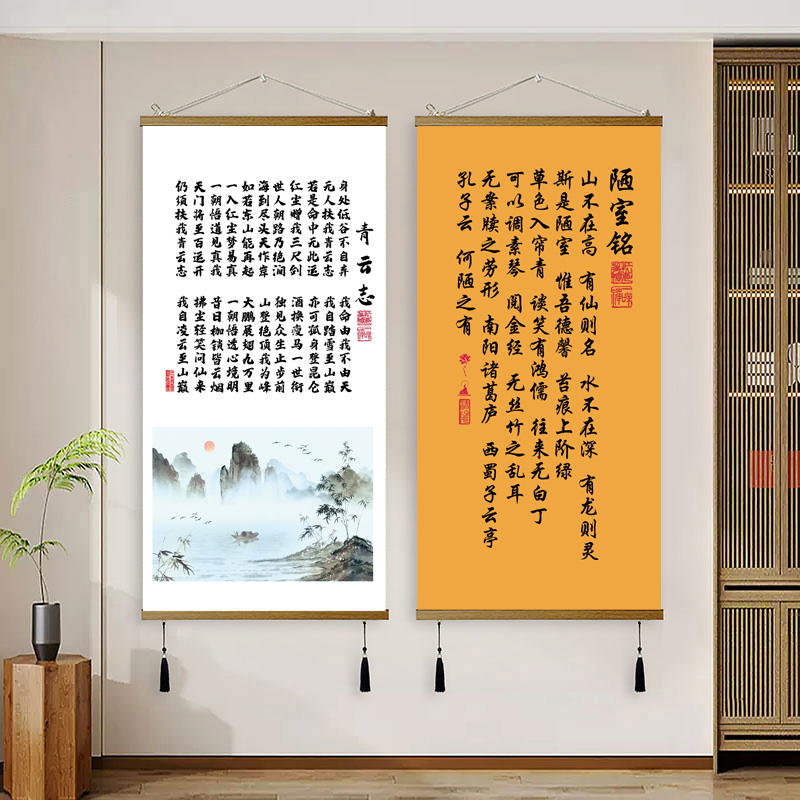 青云志
身处低谷不自弃 我命由我不由天
无人扶我青云志 我自踏雪至山巅
若是命中无此运 亦可孤身登昆仑
红尘赠我三尺剑 酒换瘦马一世衔
世人朝路乃绝涧 独见众生止步前
海到尽头天作岸 山登绝顶我为峰
如若东山能再起 大鹏展翅九万里
一入红尘梦易真 一朝悟透心境明
一朝悟道见真我 昔日枷锁皆云烟
天门将至百运开 拂尘轻笑问仙来
仍须扶我青云志 我自凌云至山巅
陋室铭
山不在高 有仙则名 水不在深 有龙则灵
斯是陋室 惟吾德馨 苔痕上阶绿
草色入帘青 谈笑有鸿儒 往来无白丁
可以调素琴 阅金经 无丝竹之乱耳
无案牍之劳形 南阳诸葛庐 西蜀子云亭
孔子云 何陋之有